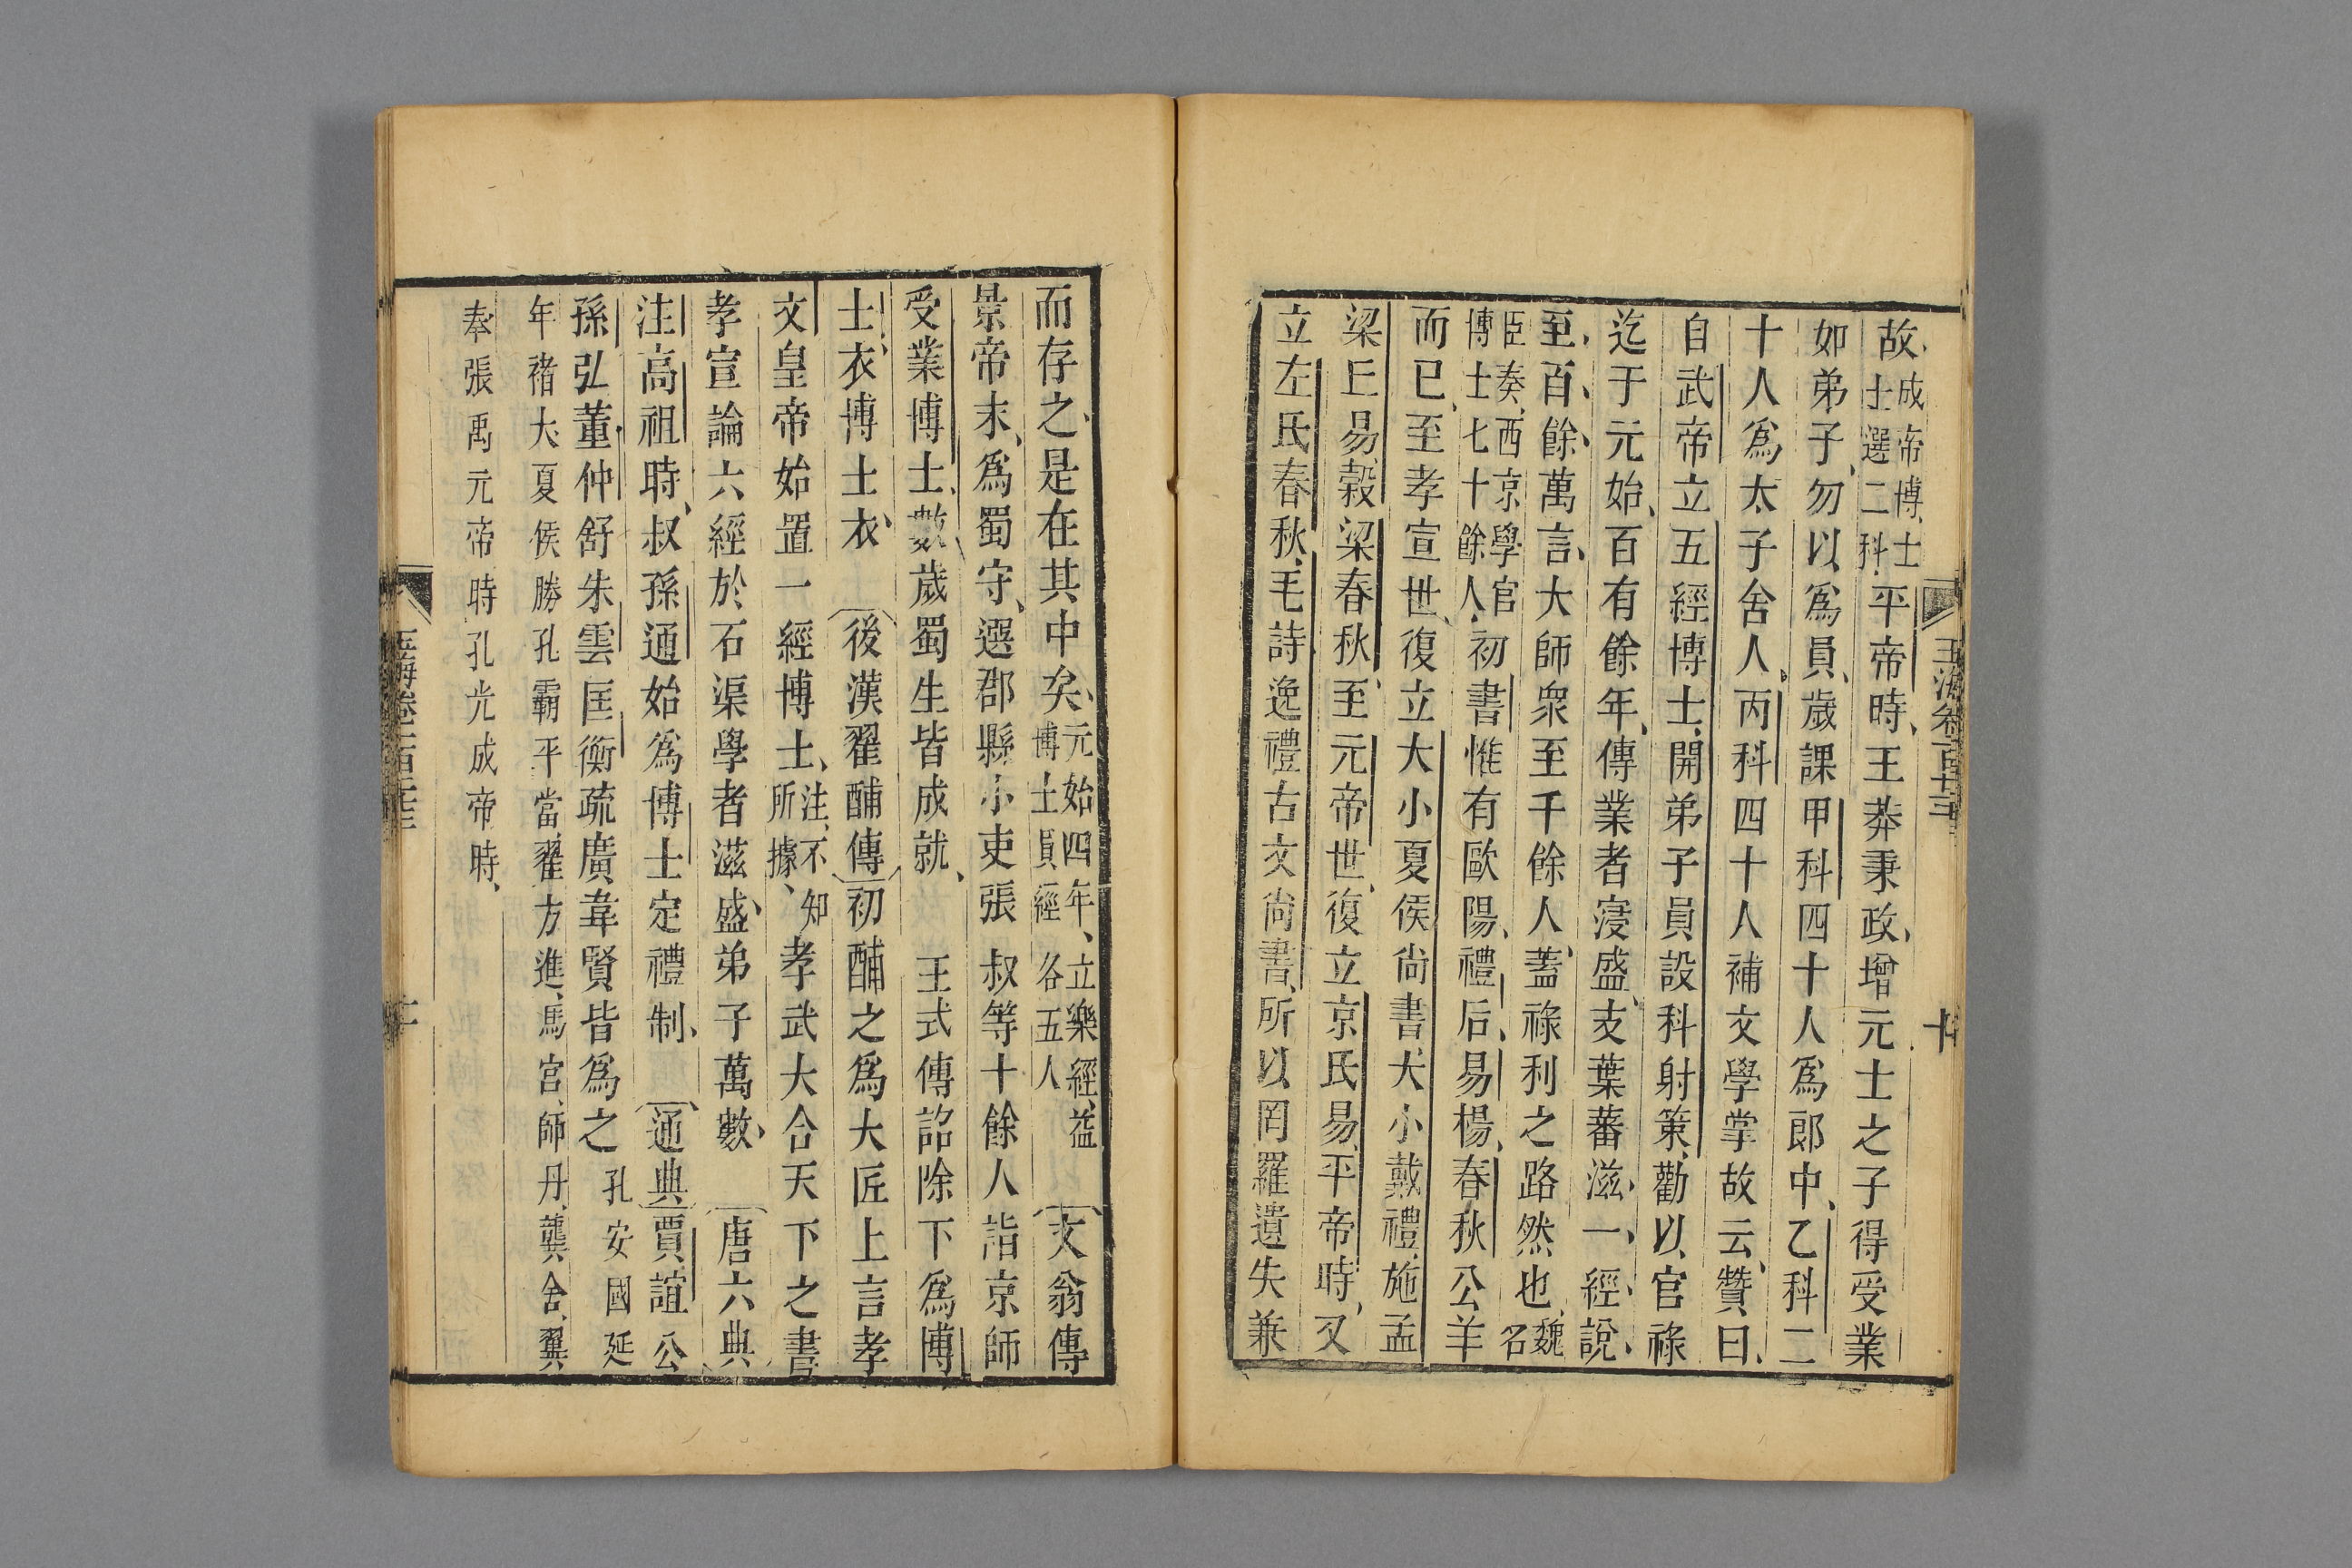 玉海卷一百十三
十
故成帝博士士選二科平帝時王莽秉政增元士之子得受業
如弟子勿以爲員歲課甲科四十人爲郎中乙科二
十人爲太子舍人丙科四十人補文學掌故云贊曰
自武帝立五經博士開弟子員設科射策勸以官祿
迄于元始百有餘年傳業者寖盛支葉蕃滋一經說
至百餘萬言大師衆至千餘人蓋祿利之路然也魏名
臣奏西京學官博士七十餘人初書惟有歐陽禮后易楊春秋公羊
而已至孝宣世復立大小夏侯尚書大小戴禮施孟
梁丘易穀梁春秋至元帝世復立京氏易平帝時又
立左氏春秋毛詩逸禮古文尚書所以罔羅遺失兼
而存之是在其中矣元始四年立樂經益博士員經各五人文翁傳
景帝末爲蜀守選郡縣小吏張叔等十餘人詣京師
受業博士數歲蜀生皆成就王式傳詔除下爲博
士衣博士衣後漢翟酺傳初酺之爲大匠上言孝
文皇帝始置一經博士注不知所據孝武大合天下之書
孝宣論六經於石渠學者滋盛弟子萬數唐六典
注高祖時叔孫通始爲博士定禮制通典賈誼公
孫弘董仲舒朱雲匡衡疏廣韋賢皆爲之孔安國延
年褚大夏侯勝孔霸平當翟方進馬宮師丹龔舍翼
奉張禹元帝時孔光成帝時